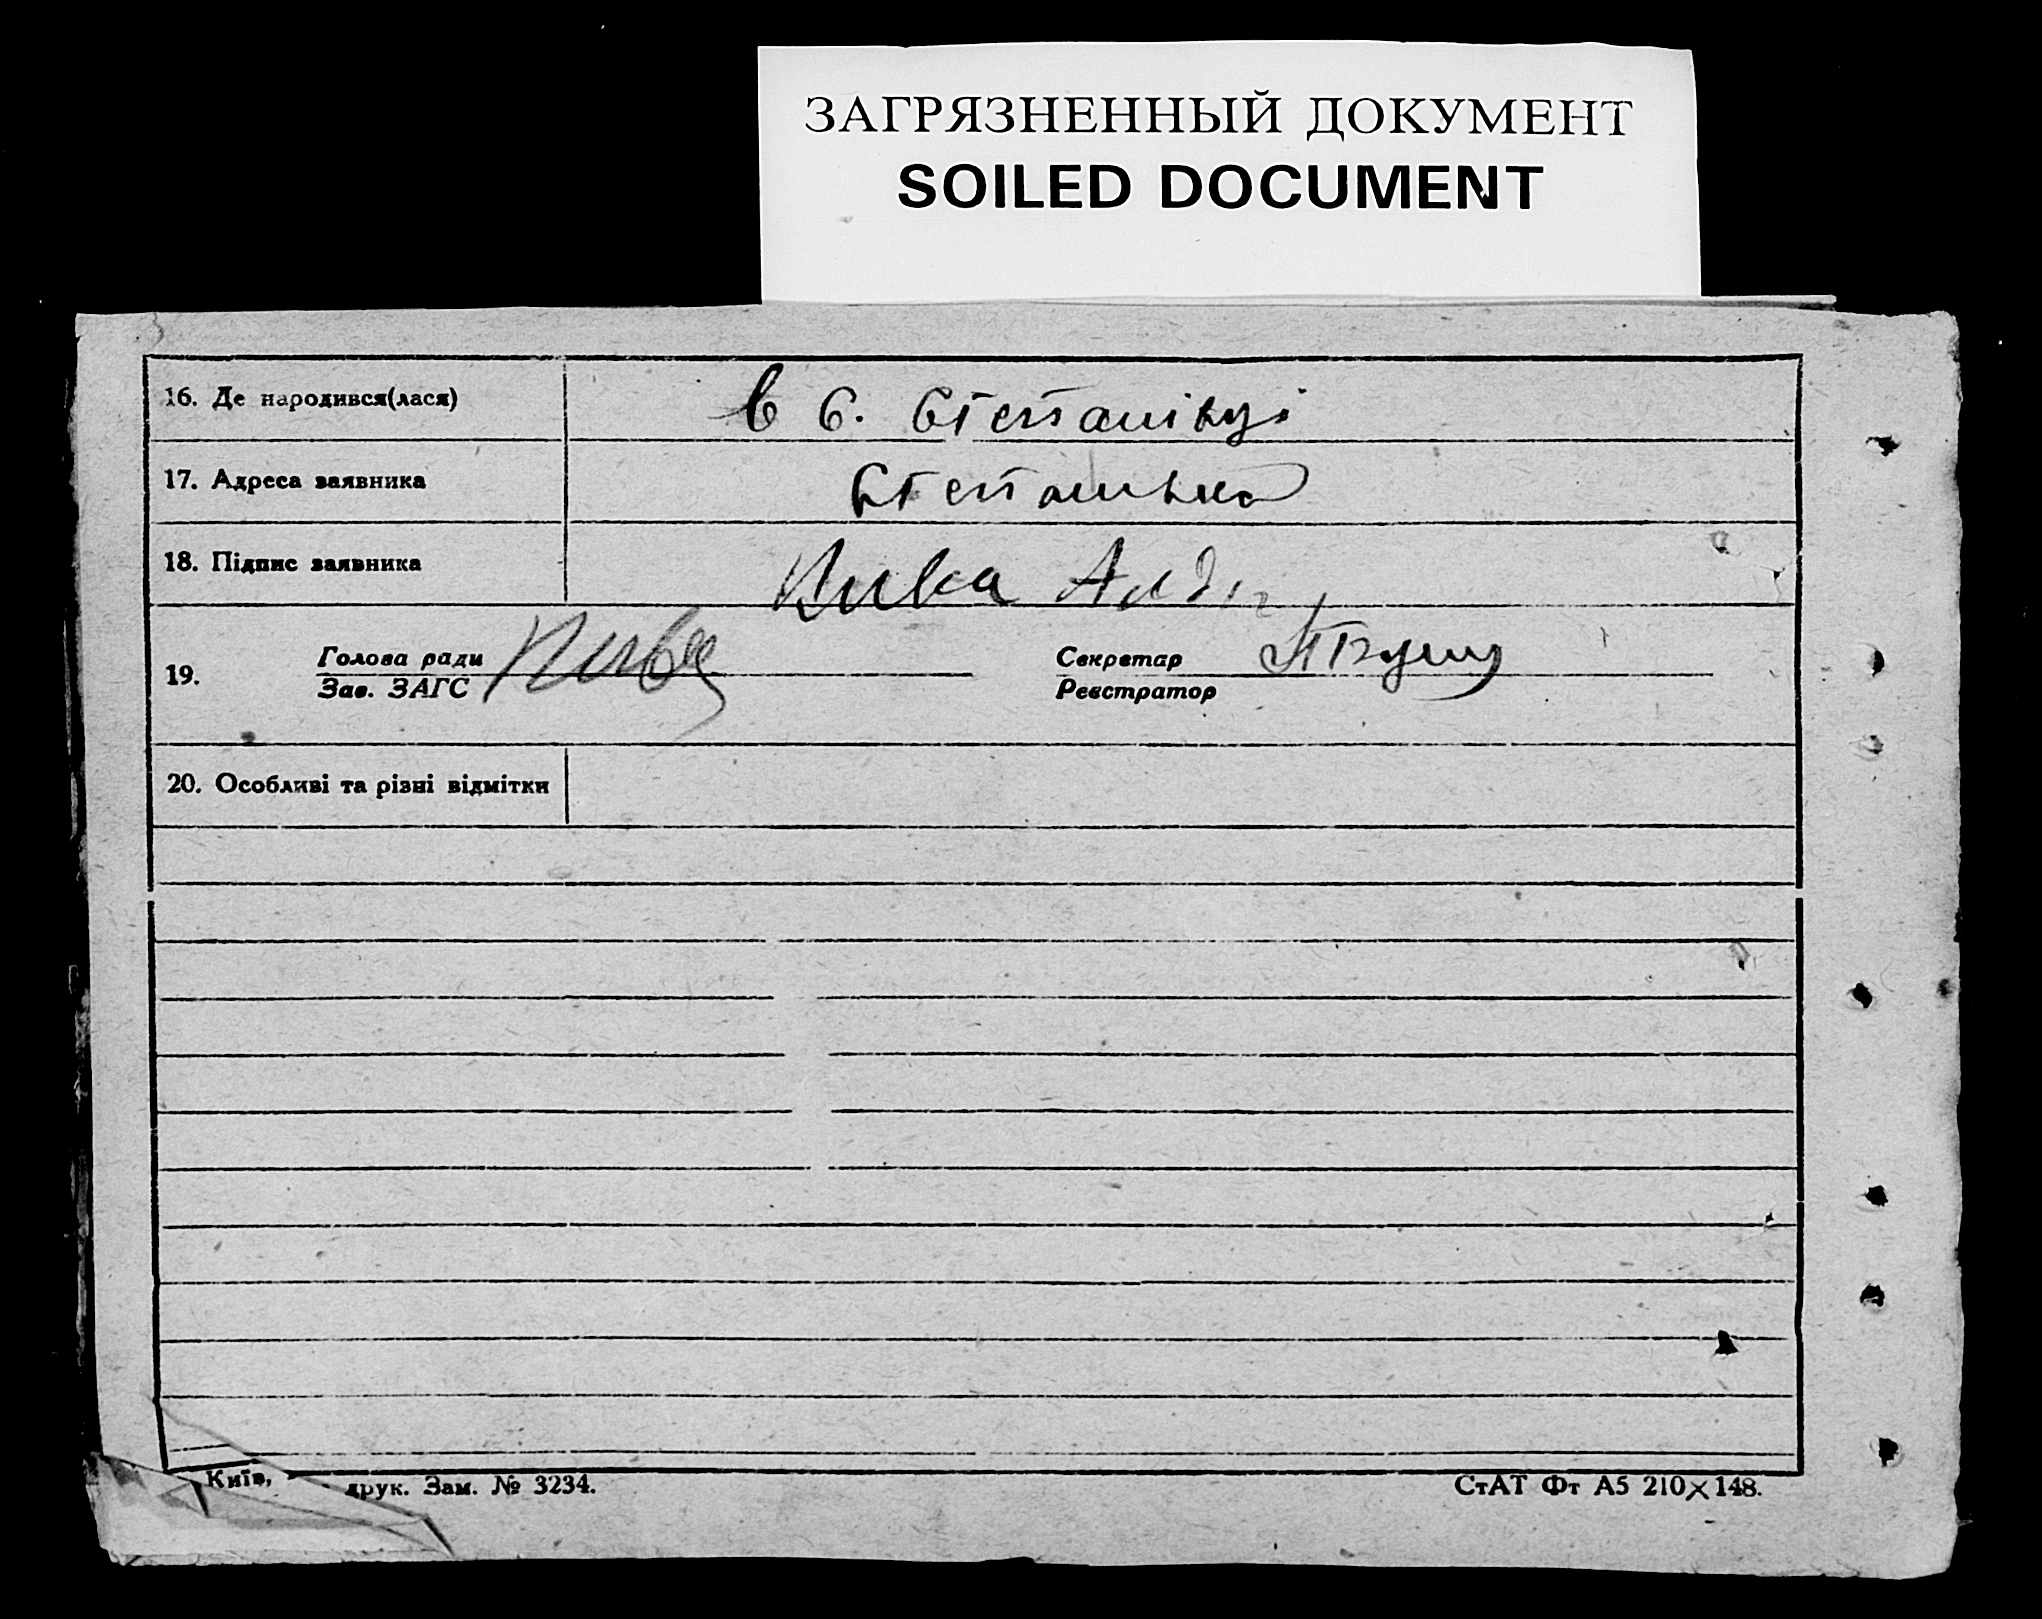 ЗАГРЯЗНЕННЫЙ ДОКУМЕНТ
SOILED DOCUMENT
16. Де народився(лася) в с. Степанівці
17. Адреса заявника Степанівка
18. Підпис заявника
19. Голова ради Секретар
Зав. ЗАГС Реєстратор
20. Особливі та різні відмітки
Київ, друк. Зам. № 3234.
СтАТ Фт А5 210×148.